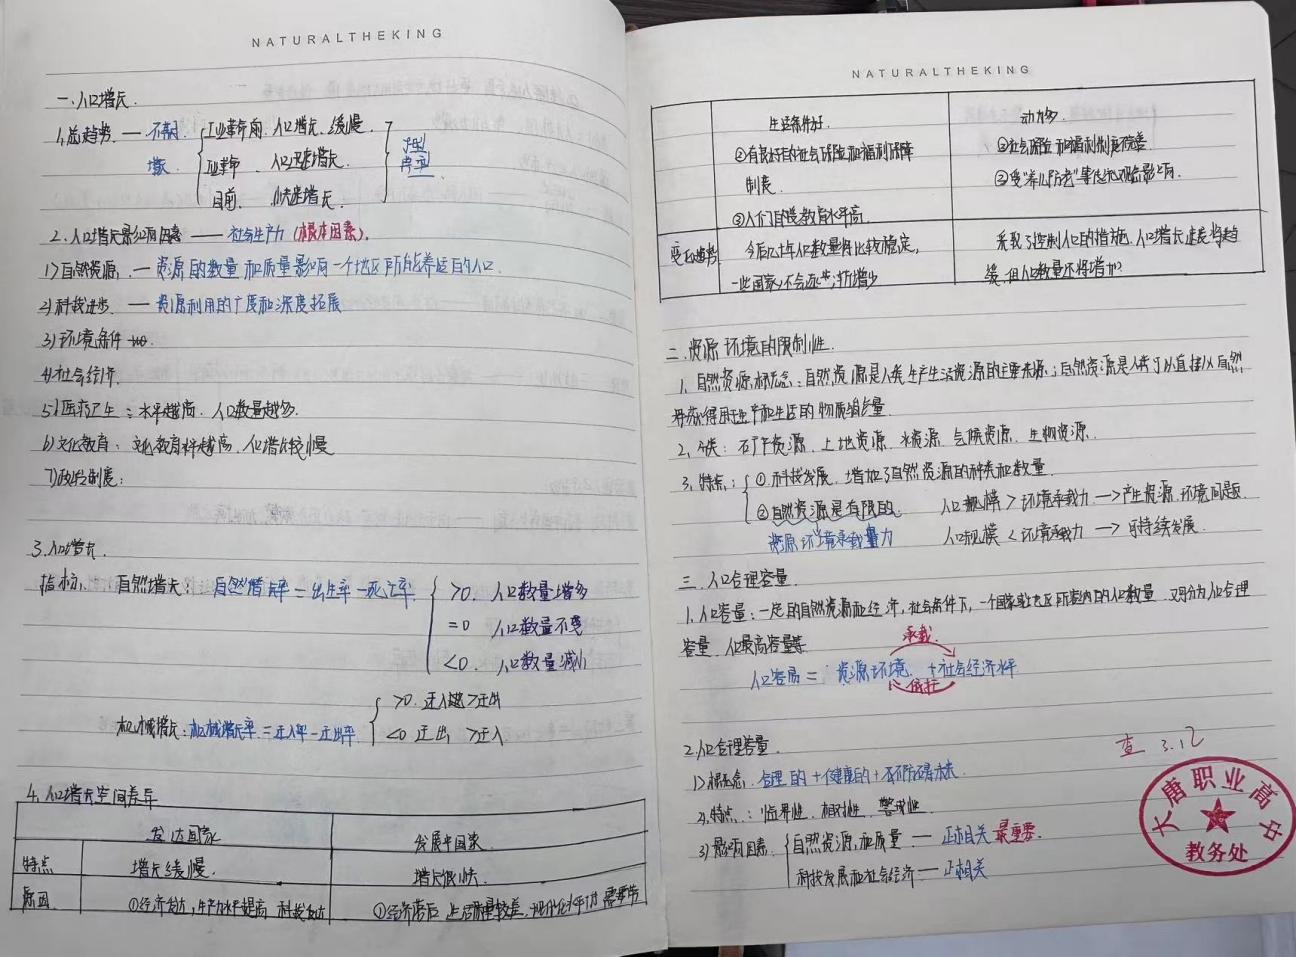 NATURALTHEKING
一、人口增长.
1,总趋势. — 不断 工业革命前. 人口增长. 缓慢.
增长 工业革命 人口迅速增长.
目前. 快速增长.
2. 人口增长影响因素 —— 社会生产力 (根本因素).
1)自然资源. — 资源的数量和质量影响一个地区所能养活的人口.
2)科技进步. — 资源利用的广度和深度拓展
3)环境条件
4)社会经济.
5)医疗卫生: 水平越高. 人口数量越多.
6)文化教育: 文化教育水平越高. 人口增长较慢
7)政治制度:
3.人口增长.
指标: 自然增长: 自然增长率 = 出生率 - 死亡率 >0. 人口数量增多
=0 人口数量不变
<0. 人口数量减少
机械增长: 机械增长率 = 迁入率 - 迁出率 >0. 迁入 >迁出
<0 迁出 >迁入.
4. 人口增长空间差异
发达国家 发展中国家.
特点 增长缓慢. 增长很快.
原因 ①经济发达,生产力水平提高 科技发达 ①经济落后 生活质量较差. 需要劳
NATURALTHEKING
生活条件好. 动力多.
②有良好的社会保险和福利保障 ②社会保险和福利制度不完善.
制度. ③受"养儿防老"等传统观念影响.
③人们自身教育水平高.
变化趋势 今后几十年人口数量将比较稳定, 采取了控制人口的措施. 人口增长速度将趋
一些国家还会逐步渐减少 缓. 但人口数量还将增加.
二. 资源环境的限制性.
1. 自然资源概念: 自然资源是人类生产生活资源的主要来源; 自然资源是人类可以直接从自然
界获得用于生产和生活的物质和能量.
2. 分类: 矿产资源. 土地资源. 水资源. 气候资源. 生物资源.
3. 特点: ①科技发展. 增加了自然资源的种类和数量.
②自然资源是有限的. 人口规模 > 环境承载力 → 产生资源.环境问题.
资源环境承载力 人口规模 < 环境承载力 → 可持续发展.
三. 人口合理容量.
1. 人口容量: 一定的自然资源和经济,社会条件下, 一个国家或地区所容纳的人口数量. 又可分为人口合理
容量. 人口最高容量等
承载.
人口容量 = 资源环境 + 社会经济水平
2.人口合理容量.
查 3.12
1)概念. 合理的+健康的+不妨碍未来.
2)特点: 临界性. 相对性. 警戒性.
3)影响因素. 自然资源.和质量 — 正相关 最重要.
科技发展和社会经济 — 正相关
大唐职业高中
教务处